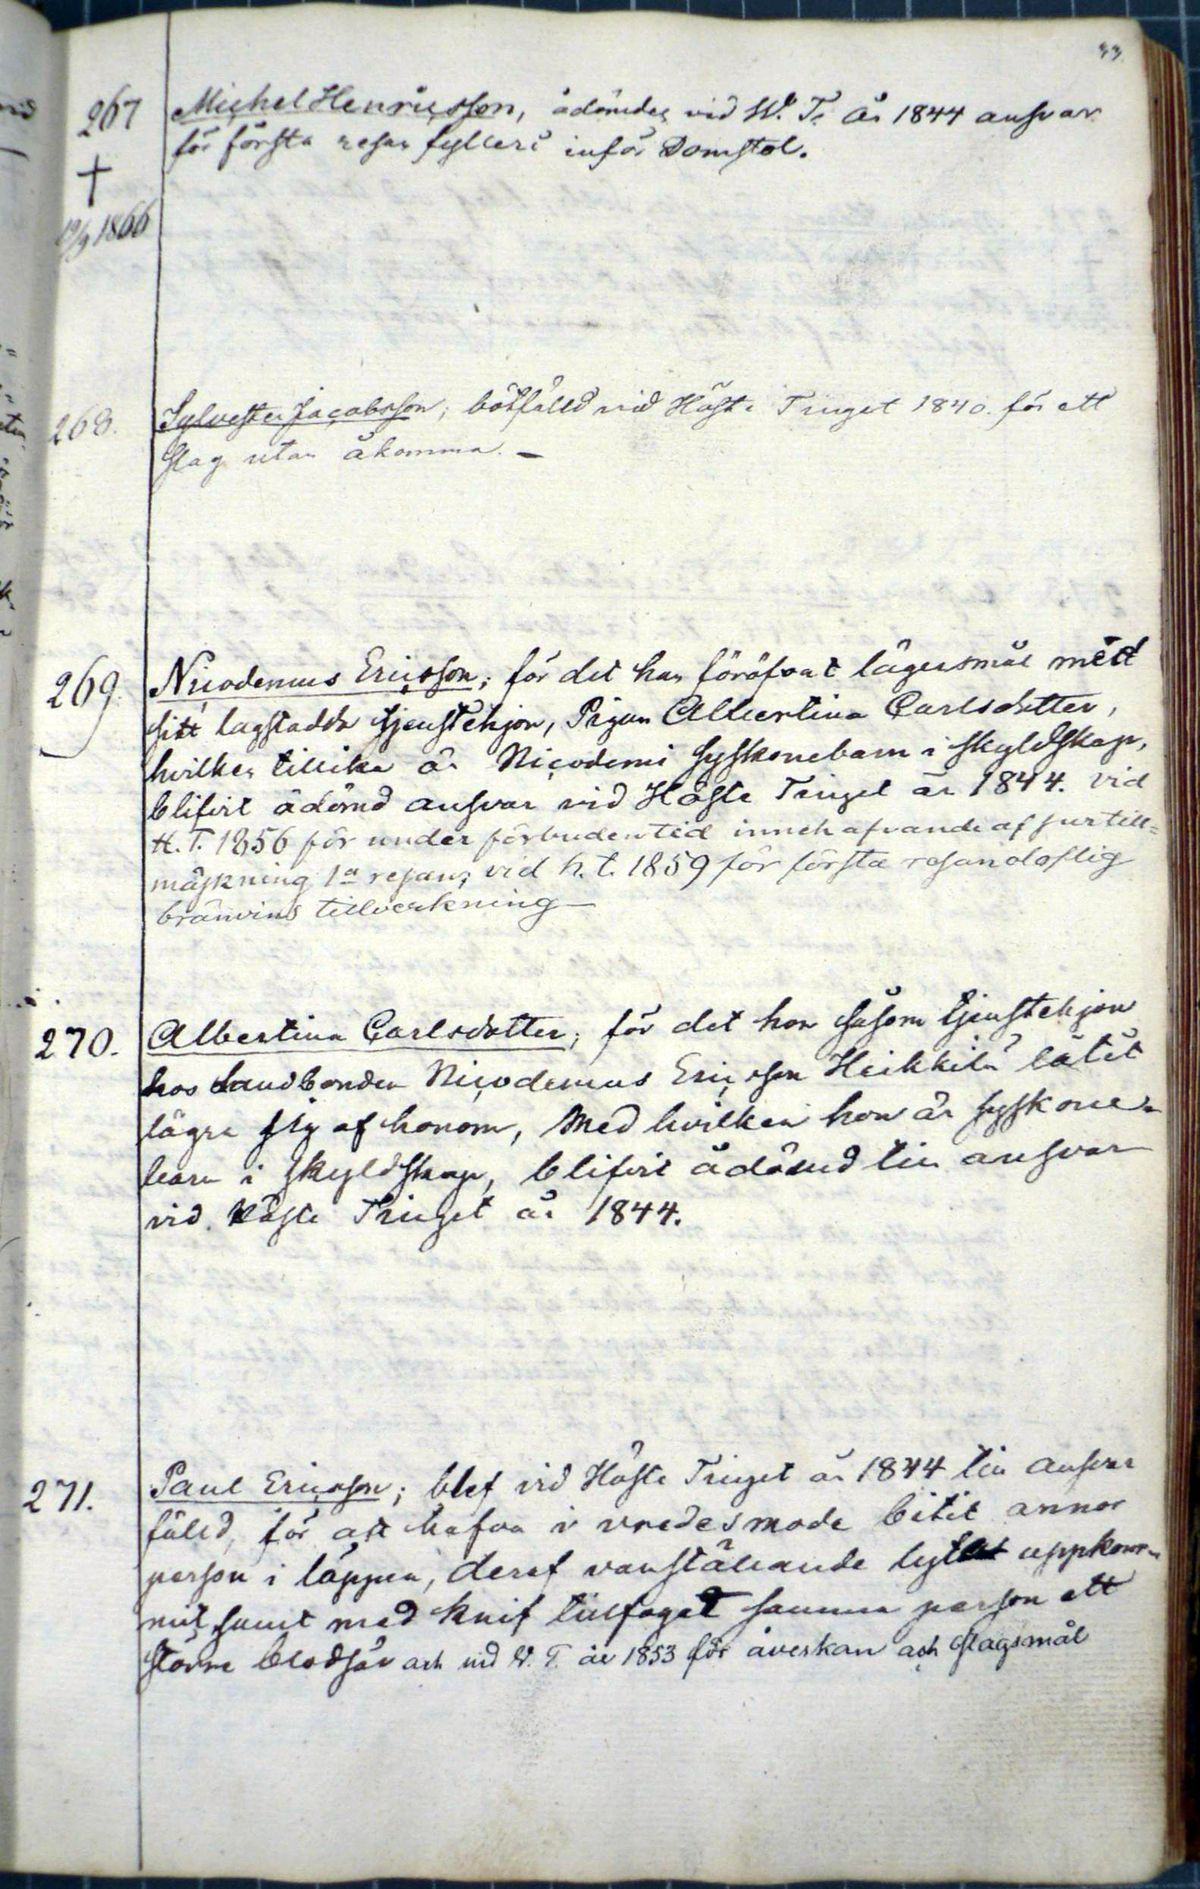 33
267 Michel Henricsson, ådömdes vid W. T. år 1844 ansvar
för första resan fylleri inför Domstol.
†
19/9 1866
268. Sylvester Jacobsson; bötfälld vid Höste Tinget 1840. för ett
slag utan åkomma. —
269. Nicodemus Ericsson; för det han föröfvat lägersmål med
sitt lagstadda tjenstehjon, Pigan Albertina Carlsdotter,
hvilken tillika är Nicodemi syskonebarn i skyldskap,
blifvit ådömd ansvar vid Höste Tinget år 1844. vid
H. T. 1856 för under förbuden tid innehafvande af
mäskning 1a resan; vid h. t. 1859 för första resan olaflig
bränvins tillverkning —
270. Albertina Carlsdotter; för det hon såsom tjenstehjon
hos Landbonden Nicodemus Ericsson Heikkilä låtit
lägra sig af honom, med hvilken hon är syskone-
barn i skyldskap, blifvit ådömd till ansvar
vid Höste Tinget år 1844.
271. Paul Ericsson; blef vid Höste Tinget år 1844 till ansvar
fälld, för att hafva i vredesmode bitit annor
person i läppen, deraf vanställande lyte uppkom-
mit samt med knif tillfogat samma person ett
större blodsår och vid V. T. år 1853 för åverkan och slagsmål